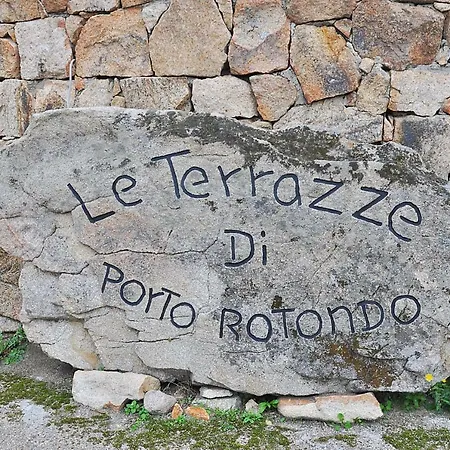 Le Terrazze
Di
Porto Rotondo